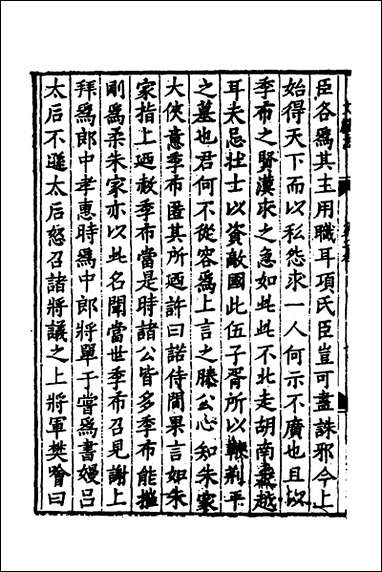 臣各爲其主用職耳項氏臣豈可盡誅邪今上
始得天下而以私怨求一人何示不廣也且以
季布之賢漢求之急如此此不北走胡南走越
耳夫忌壯士以資敵國此伍子胥所以鞭荆平
之墓也君何不從容爲上言之滕公心知朱家
大俠意季布匿其所迺許曰諾侍間果言如朱
家指上迺赦季布當是時諸公皆多季布能摧
剛爲柔朱家亦以此名聞當世季布召見謝上
拜爲郎中孝惠時爲中郎將單于嘗爲書嫚呂
太后不遜太后怒召諸將議之上將軍樊噲曰